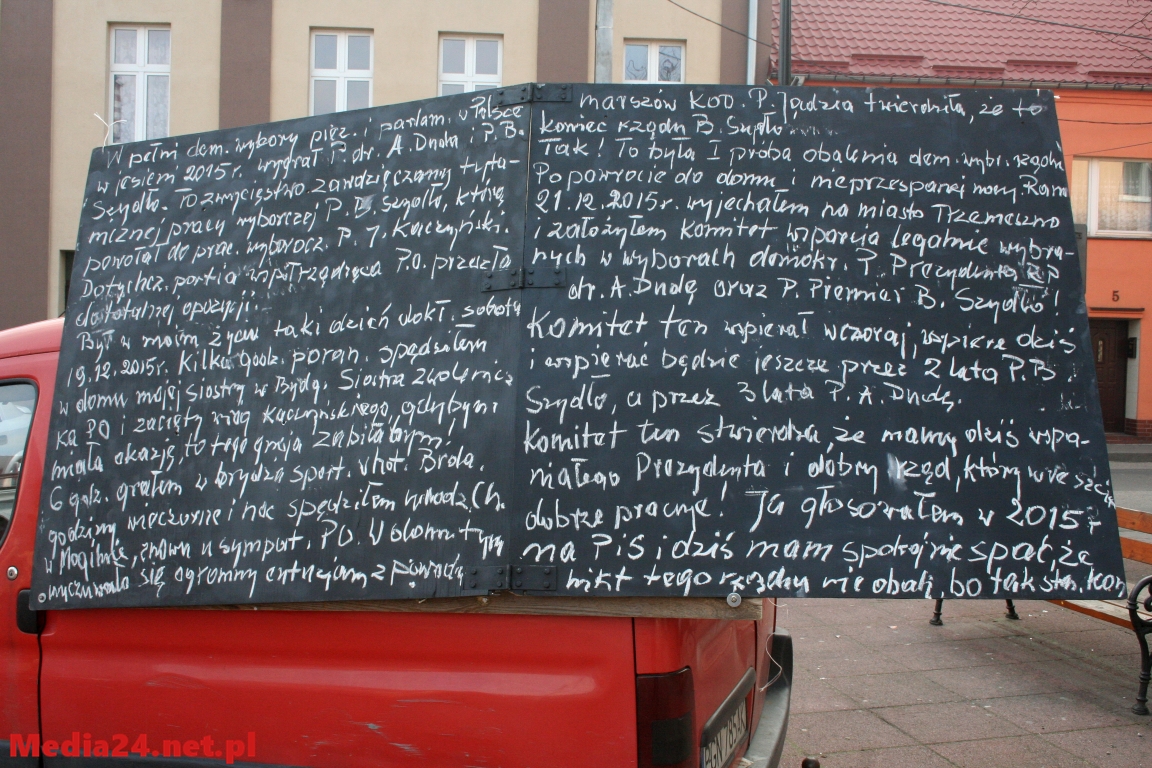 W pełni dem. wybory prez. i parlam. w Polsce
w jesieni 2015 r. wygrał P. dr. A. Duda i P. B.
Szydło. To zwycięstwo zawdzięczamy tyta-
nicznej pracy wyborczej P. B. Szydło, którą
powołał do prac. wyborcz. P. J. Kaczyński.
Dotychcz. partia współrządząca P.O. przeszła
do totalnej opozycji.
Był w moim życiu taki dzień dokł. sobota
19.12.2015r. Kilka godz. poran. spędziłem
w domu mojej siostry w Bydg. Siostra zwolennicz
ka PO i zacięty wróg Kaczyńskiego, gdybym
miała okazję, to tego gnoja zabiłabym!
6 godz. grałem w brydża sport. w hot. Brda.
godziny wieczorne i noc spędziłem u
w Mogilnie, znown u sympat. PO. U
się ogromny entuzjazm z powodu
marszów KOD. P. Jadzia twierdziła, że to
koniec rządu B. Szydło
Tak! To była I próba obalenia dem. wybr. rządu
Po powrocie do domu i nieprzespanej nocy. Rano
21.12.2015 r. wyjechałem na miasto Trzemeszno
i założyłem komitet wsparcia legalnie wybra-
nych w wyborach demokr. P. Prezydenta RP
dr. A. Dudę oraz P. Premier B. Szydło!
Komitet ten wspierał wczoraj, wspiera dziś
i wspierać będzie jeszcze przez 2 lata P. B.
Szydło, a przez 3 lata P. A. Dudę.
Komitet ten stwierdza, że mamy dziś wspa-
niałego Prezydenta i dobry rząd, który
dobrze pracuje! Ja głosowałem w 2015 r
na PiS i dziś mam spokojnie spać, że
nikt tego rządu nie obali, bo tak
5
Media24.net.pl